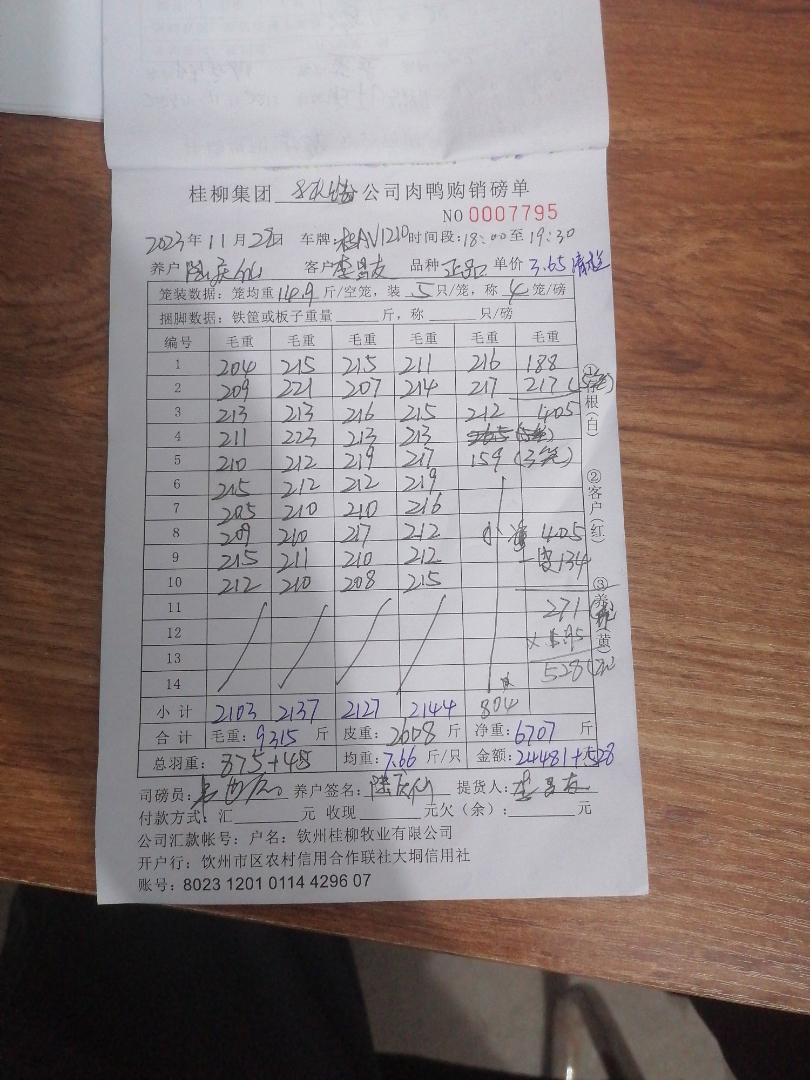 桂柳集团 公司肉鸭购销磅单
NO 0007795
2023年11月28日 车牌:桂AV1210 时间段:18:00至19:30
养户 客户 李昌友 品种 正品 单价 3.65
笼装数据:笼均重14.9斤/空笼,装5只/笼,称4笼/磅
捆脚数据:铁筐或板子重量 斤,称 只/磅
编号 毛重 毛重 毛重 毛重 毛重 毛重
1 204 215 215 211 216 188
2 209 221 207 214 217 217(5笼)
3 213 213 216 215 212 405
4 211 223 213 213
5 210 212 219 217 159(3笼)
6 215 212 212 219
7 205 210 210 216
8 209 210 217 212 小 405
9 215 211 210 212 -皮134
10 212 210 208 215
11 271
12 ×
13 528
14
小计 2103 2137 2127 2144 804
合计 毛重:9315斤 皮重:2608斤 净重:6707斤
总羽重:875+48 均重:7.66斤/只 金额:24481+528
司磅员: 养户签名: 提货人:李昌友
付款方式:汇 元 收现 元欠(余): 元
公司汇款帐号:户名:钦州桂柳牧业有限公司
开户行:钦州市区农村信用合作联社大垌信用社
账号:8023 1201 0114 4296 07
①存根(白)
②客户(红)
③养户(黄)